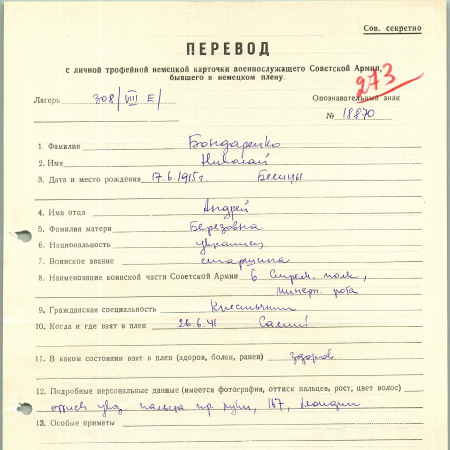 Сов. секретно
ПЕРЕВОД
с личной трофейной немецкой карточки военнослужащего Советской Армии,
бывшего в немецком плену.
273
Лагерь 308/VIII E/ Опознавательный знак
№ 18870
1. Фамилия Бондаренко
2. Имя Николай
3. Дата и место рождения 17.6.1915г.
4. Имя отца Андрей
5. Фамилия матери Березовна
6. Национальность украинец
7. Воинское звание старшина
8. Наименование воинской части Советской Армии 6 Стрелк. полк,
рота
9. Гражданская специальность Крестьянин
10. Когда и где взят в плен 26.6.41
11. В каком состоянии взят в плен (здоров, болен, ранен) здоров
12. Подробные персональные данные (имеется фотография, оттиск пальцев, рост, цвет волос)
оттиск указ. пальца пр. руки, 167,
13. Особые приметы